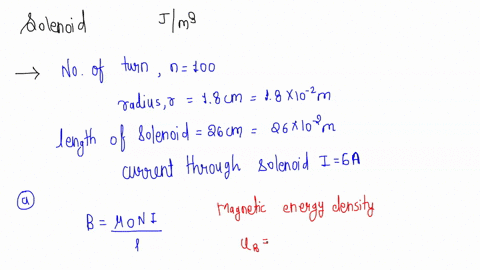 Solenoid J/m3
→ No. of turn, n=100
radius, r = 1.8cm = 1.8×10⁻² m
length of Solenoid = 26cm = 26×10⁻² m
current through solenoid I=6A
(a)
B = μ0NI / l
Magnetic energy density
u_B =